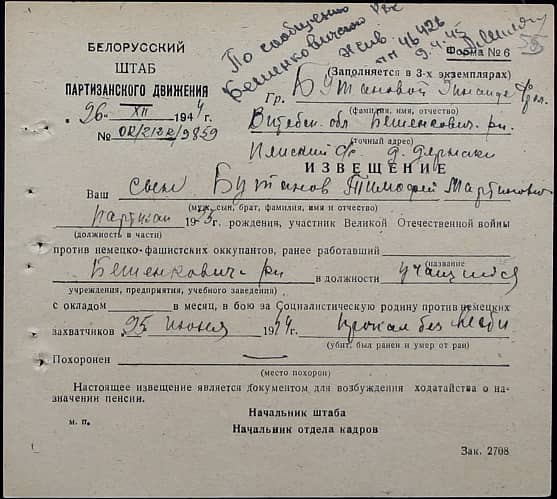 По сообщению
Бешенковичского РВК
жив
пп 46426
9.4.45
БЕЛОРУССКИЙ
ШТАБ
ПАРТИЗАНСКОГО ДВИЖЕНИЯ
„26" XII 1944 г.
№
Форма № 6
(Заполняется в 3-х экземплярах)
Гр. Бутановой
(фамилия, имя, отчество)
Витебск. обл. Бешенкович. р-н.
(точный адрес)
ИЗВЕЩЕНИЕ
Ваш сын Бутанов Тимофей Мартинович
(муж, сын, брат, фамилия, имя и отчество)
партизан 19 г. рождения, участник Великой Отечественной войны
(должность в части)
против немецко-фашистских оккупантов, ранее работавший
(название
Бешенкович. р-н в должности учащийся
учреждения, предприятия, учебного заведения)
с окладом в месяц, в бою за Социалистическую родину против немецких
захватчиков 25 июня 1944 г. пропал без вести
(убит, был ранен и умер от ран)
Похоронен —
(место похорон)
Настоящее извещение является документом для возбуждения ходатайства о на-
значении пенсии.
Начальник штаба
м. п.
Начальник отдела кадров
Зак. 2708